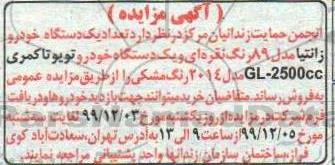 ( آگهی مزایده )
انجمن حمایت زندانیان مرکز در نظر دارد تعداد یک دستگاه خودرو
زانتیا مدل ۸۹ رنگ نقره ای و یک دستگاه خودرو تویوتا کمری
GL-2500cc مدل ۲۰۱۴ رنگ مشکی را از طریق مزایده عمومی
به فروش رساند. متقاضیان خرید میتوانند جهت بازدید خودرو ها و دریافت
فرم شرکت در مزایده از روز یکشنبه مورخ ۹۹/۱۲/۰۳ لغایت سه شنبه
مورخ ۹۹/۱۲/۰۵ از ساعت ۹ الی ۱۳ به آدرس تهران، سعادت آباد کوی
فراز ساختمان سازمان زندانها واحد پشتیبانی مراجعه نمایند.